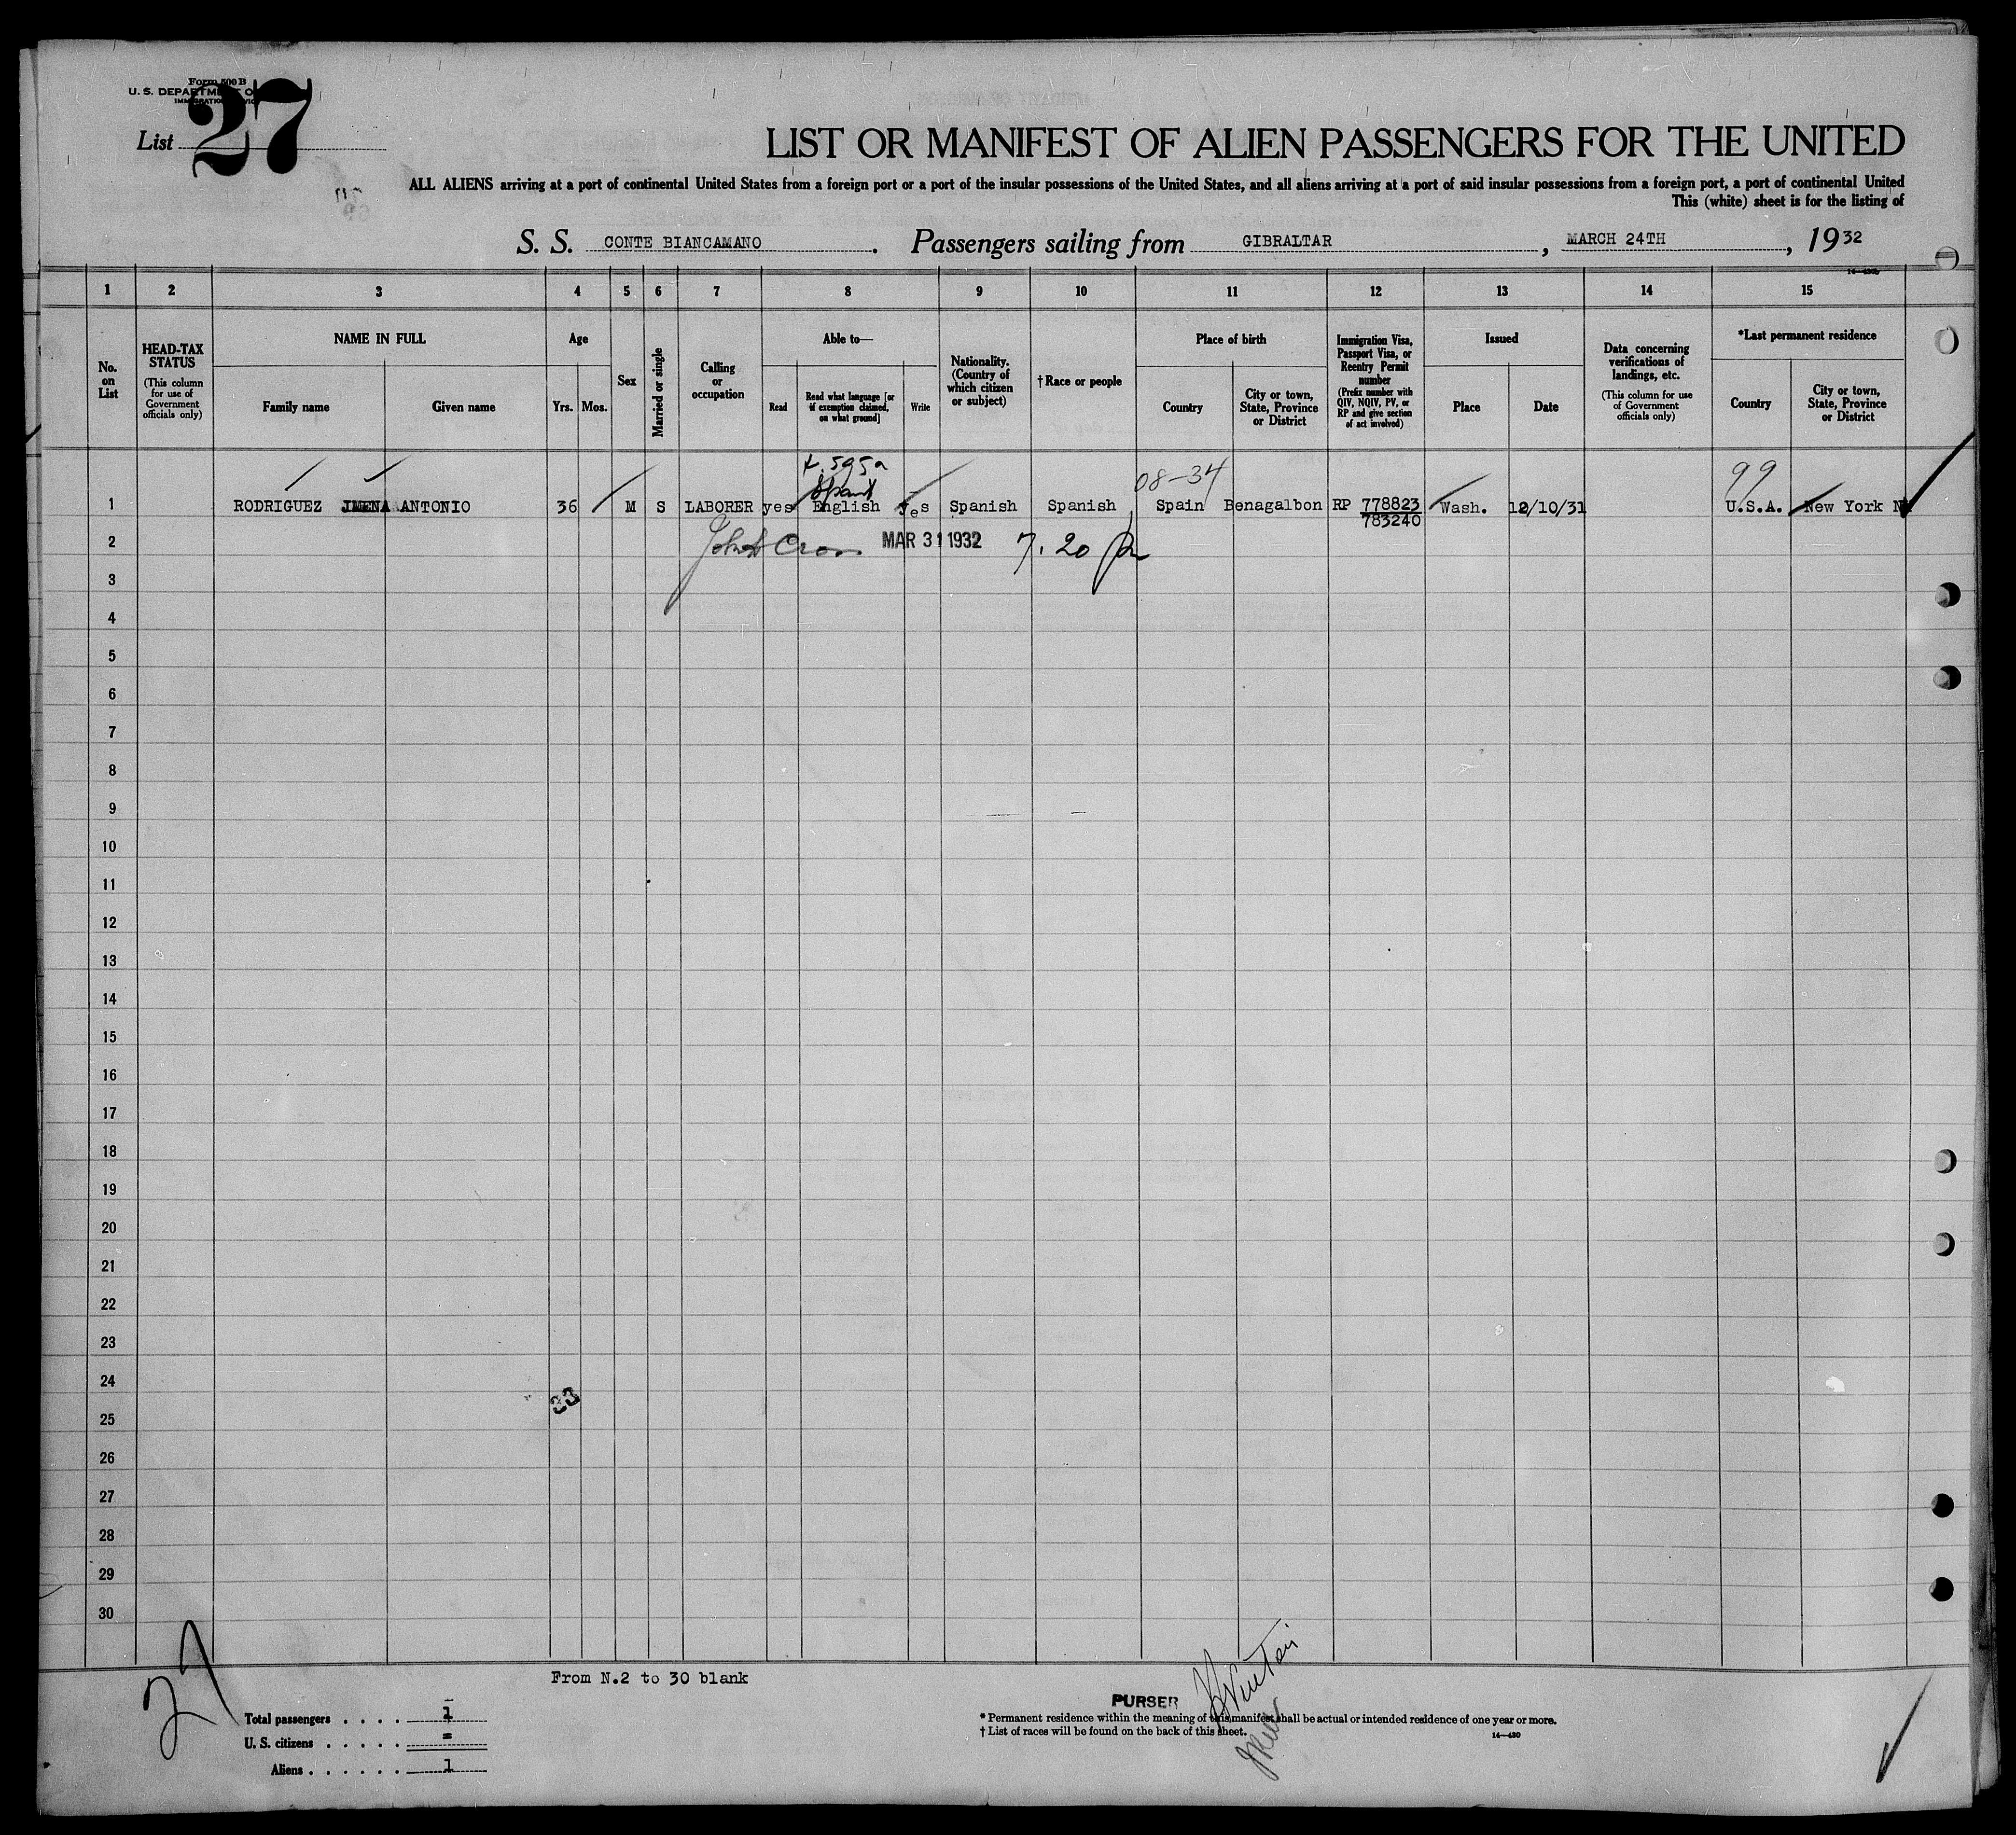 Form 500 B
U. S. DEPARTMENT O
IMMIGRATION
List 27
LIST OR MANIFEST OF ALIEN PASSENGERS FOR THE UNITED
ALL ALIENS arriving at a port of continental United States from a foreign port or a port of the insular possessions of the United States, and all aliens arriving at a port of said insular possessions from a foreign port, a port of continental United
This (white) sheet is for the listing of
S. S. CONTE BIANCAMANO. Passengers sailing from GIBRALTAR, MARCH 24TH, 1932
1 2 3 4 5 6 7 8 9 10 11 12 13 14 15
No. on List
HEAD-TAX STATUS
(This column for use of Government officials only)
NAME IN FULL
Family name
Given name
Age
Yrs. Mos.
Sex
Married or single
Calling or occupation
Able to—
Read
Read what language [or if exemption claimed, on what ground]
Write
Nationality. (Country of which citizen or subject)
† Race or people
Place of birth
Country
City or town, State, Province or District
Immigration Visa, Passport Visa, or Reentry Permit number
(Prefix number with QIV, NQIV, PV, or RP and give section of act involved)
Issued
Place
Date
Data concerning verifications of landings, etc.
(This column for use of Government officials only)
*Last permanent residence
Country
City or town, State, Province or District
08-34
99
1 RODRIGUEZ ANTONIO 36 M S LABORER yes English yes Spanish Spanish Spain Benagalbon RP 778823 Wash. 12/10/31 U.S.A. New York N
783240
2 MAR 31 1932 7.20
3
4
5
6
7
8
9
10
11
12
13
14
15
16
17
18
19
20
21
22
23
24
33
25
26
27
28
29
30
27
From N.2 to 30 blank
Total passengers . . . . 1
U. S. citizens . . . . . =
Aliens . . . . . . 1
PURSER
* Permanent residence within the meaning of this manifest shall be actual or intended residence of one year or more.
† List of races will be found on the back of this sheet.
14—430